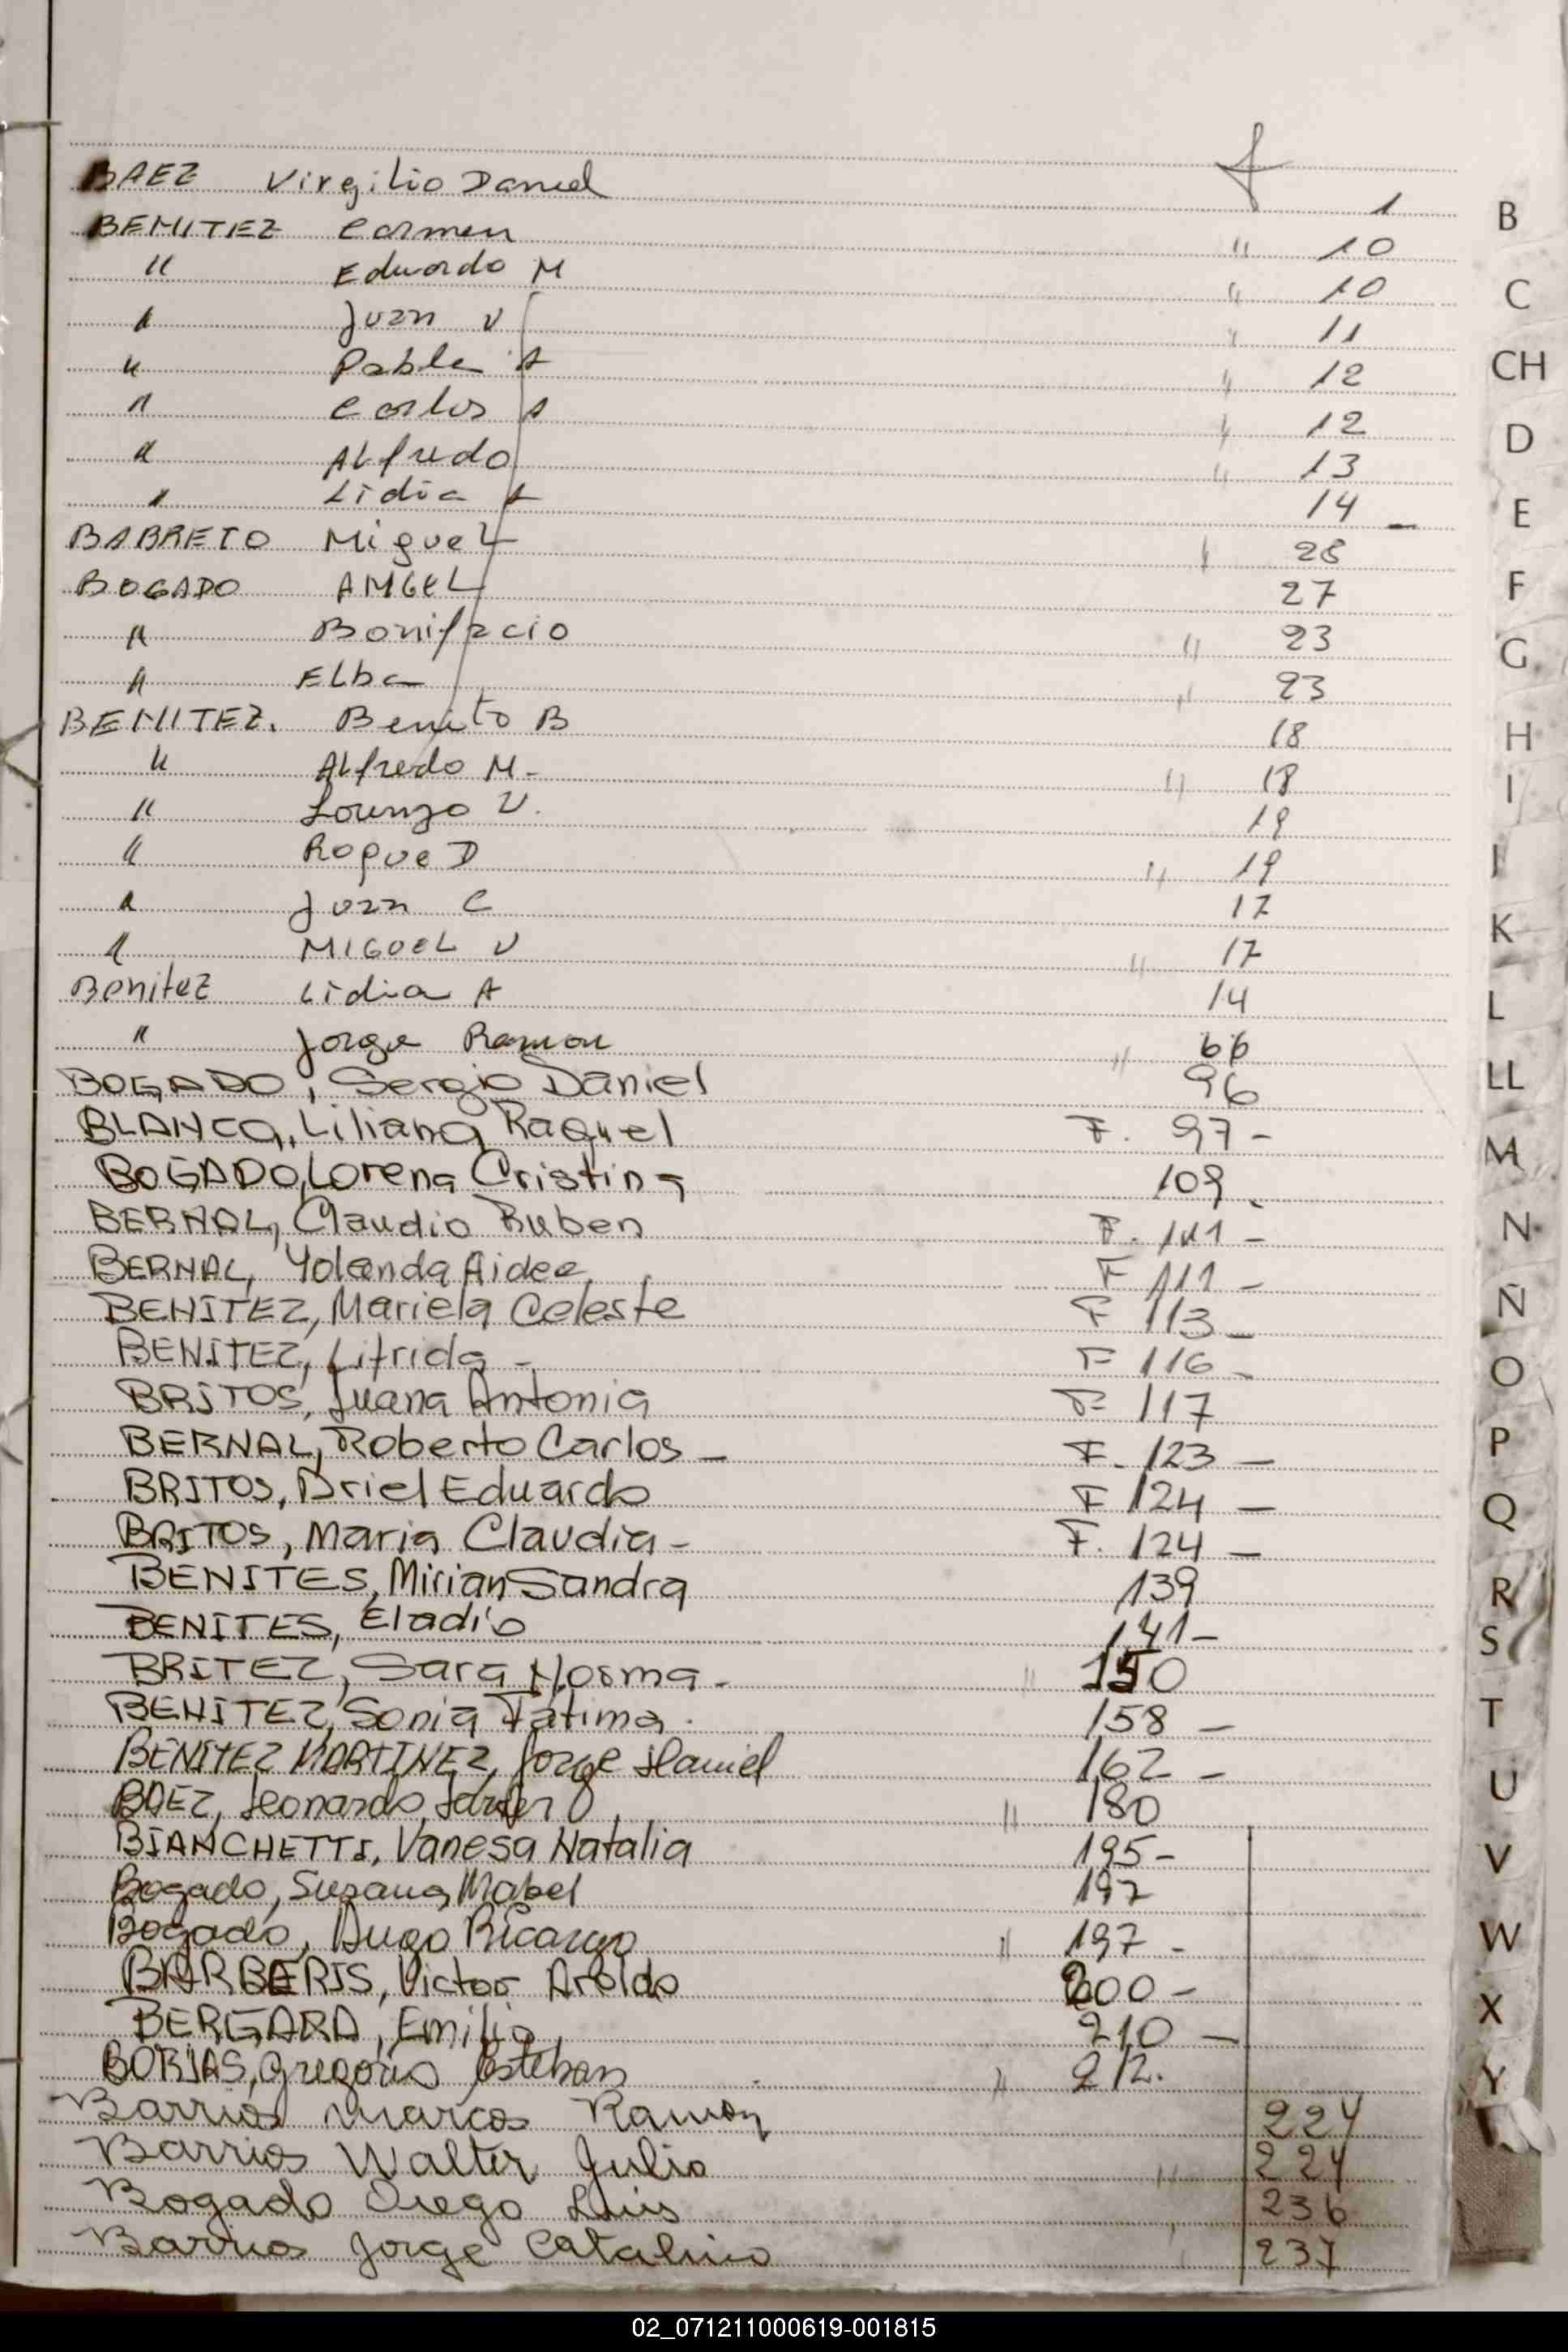 BAEZ Virgilio Daniel f 1
BENITEZ Carmen " 10
" Eduardo M " 10
" Juan V " 11
" Pablo A " 12
" Carlos A " 12
" ALfredo " 13
" Lidia A 14 –
BARRETO Miguel " 28
BOGADO ANGEL 27
" Bonifacio " 23
" ELba " 23
BENITEZ. Benito B 18
" ALfredo M - " 18
" Lorenzo V. 19
" Roque D " 19
" Juan C 17
" MIGUEL V " 17
Benitez Lidia A 14
" Jorge Ramon " 66
BOGADO, Sergio Daniel 96
BLANCO, Liliana Raquel F. 97 -
BOGADO, Lorena Cristina 109.
BERNAL, Claudio Ruben F. 111 -
BERNAL, Yolanda Aidee F 111 -
BENITEZ, Mariela Celeste F 113 -
BENITEZ, Litrida - F 116 -
BRITOS, Juana Antonia F 117
BERNAL, Roberto Carlos - F. 123 -
BRITOS, Ariel Eduardo F 124 -
BRITOS, Maria Claudia - F. 124 -
BENITES, Mirian Sandra 139
BENITES, Eladio 141 -
BRITEZ, Sara Norma. " 150
BENITEZ, Sonia Fatima. 158 -
BENITEZ MARTINEZ, Jorge Daniel 162 -
BAEZ, Leonardo Javier O. " 180
BIANCHETTI, Vanesa Natalia 195 -
Bogado, Susana Mabel 197
Bogado, Hugo Ricardo " 197 -
BARBERIS, Victor Aroldo 200 -
BERGARA, Emilia 210 -
BORJAS, Gregorio Esteban " 212.
Barrios Marcos Ramon 224
Barrios Walter Julio " 224
Bogado Diego Luis 236
Barrios Jorge Catalino 237
B
C
CH
D
E
F
G
H
I
J
K
L
LL
M
N
Ñ
O
P
Q
R
S
T
U
V
W
X
Y
02_071211000619-001815